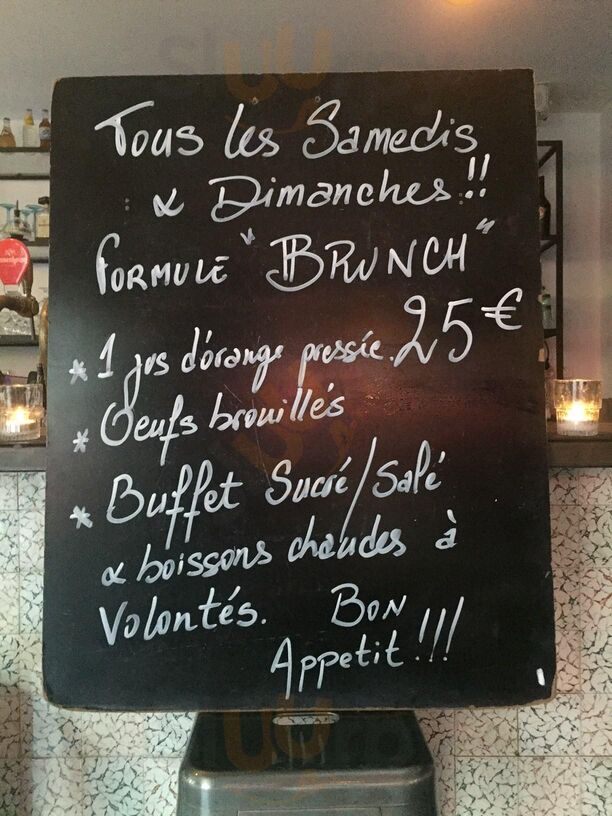 Tous les Samedis
& Dimanches!!
FORMULE "BRUNCH"
* 1 jus d'orange pressée. 25€
* Oeufs brouillés
* Buffet Sucré/Salé
& boissons chaudes à
Volontés. BON
Appetit!!!